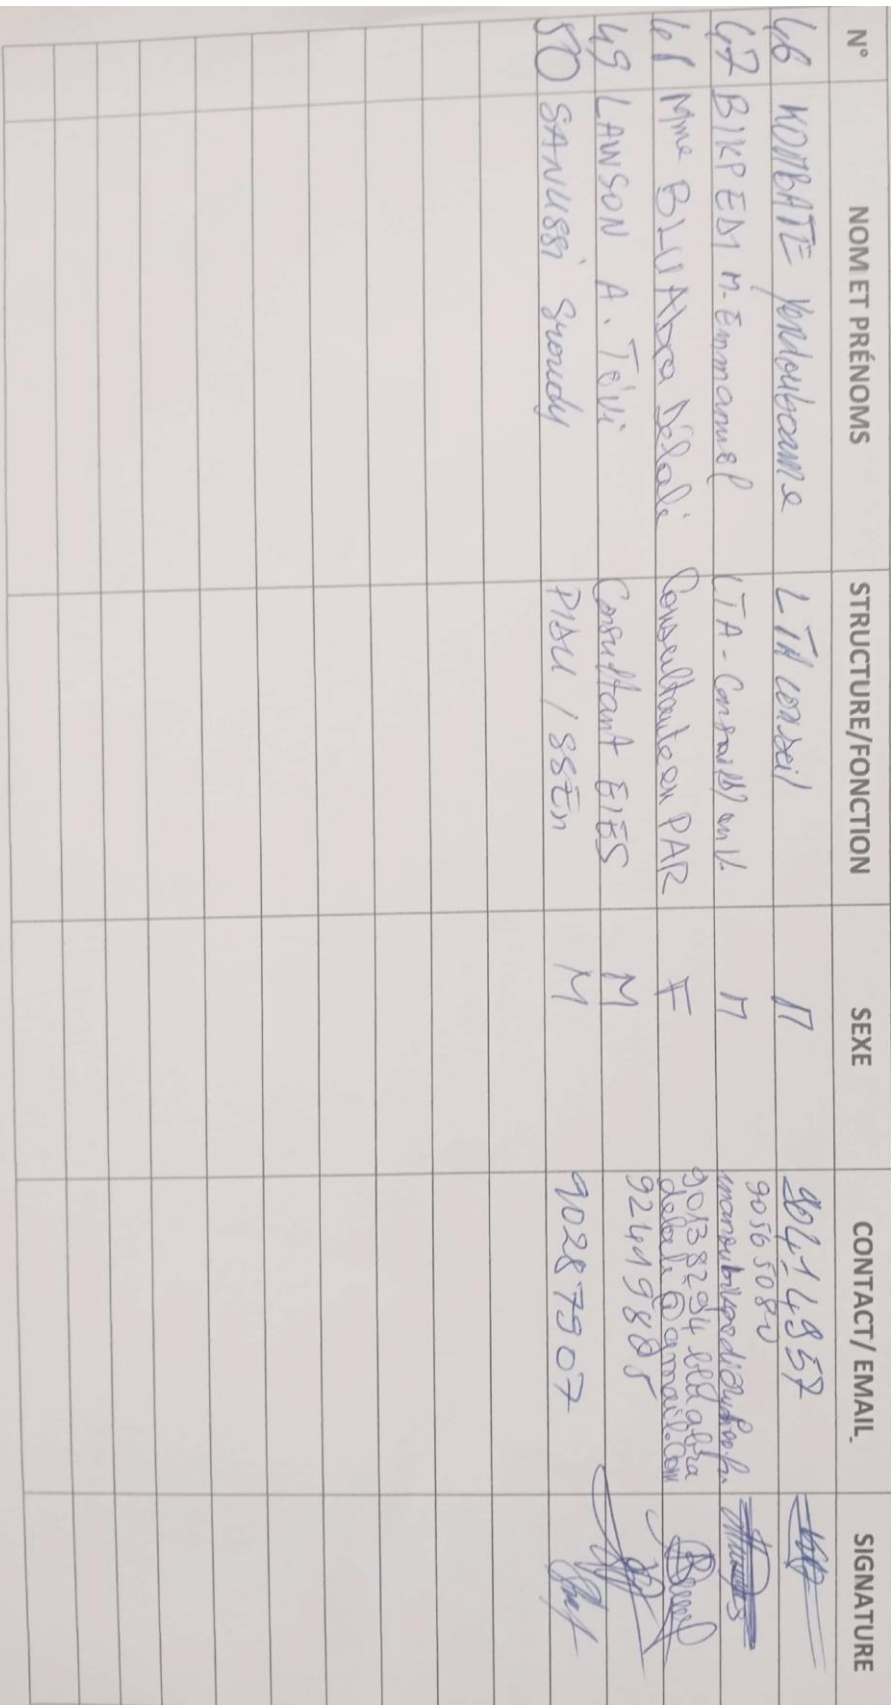 N° NOM ET PRÉNOMS STRUCTURE/FONCTION SEXE CONTACT/ EMAIL SIGNATURE
46 KOMBATE Yendouboame LTA conseil M 90414957
47 BIKPEDI M. Emmanuel LTA-Conseil M 90565080
48 Mme BLU Abra Délali Consultante en PAR F 90138294 bluabra
delali@gmail.com
49 LAWSON A. Tévi Consultant EIES M 92419885
50 SANUSSI M 90287907